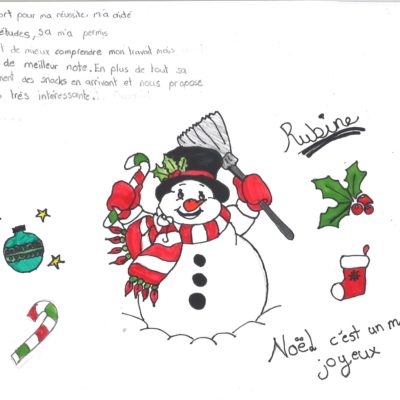 ort pour ma réussite, m'a aidé
études, sa m'a permis
de mieux comprendre mon travail mais
de meilleur note. En plus de tout sa
ment des snacks en arrivant et nous propose
très intéressante.
Rubine
Noël c'est un m
joyeux